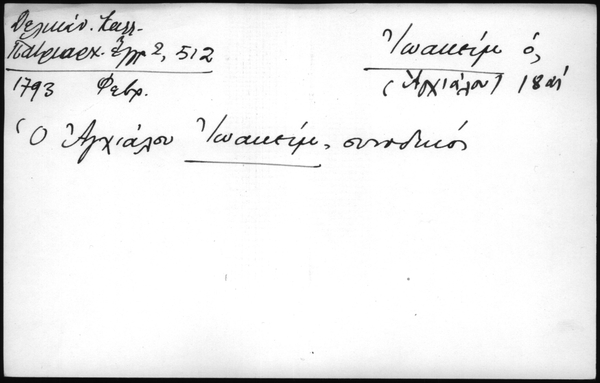 Δελικάν. Καλλ.
Πατριαρχ. Ἔγγρ 2, 512
1793 Φεβρ.
Ἰωακεὶμ ὁ,
(Ἀγχιάλου) 18 αἰ
Ὁ Ἀγχιάλου Ἰωακεὶμ, συνοδικός